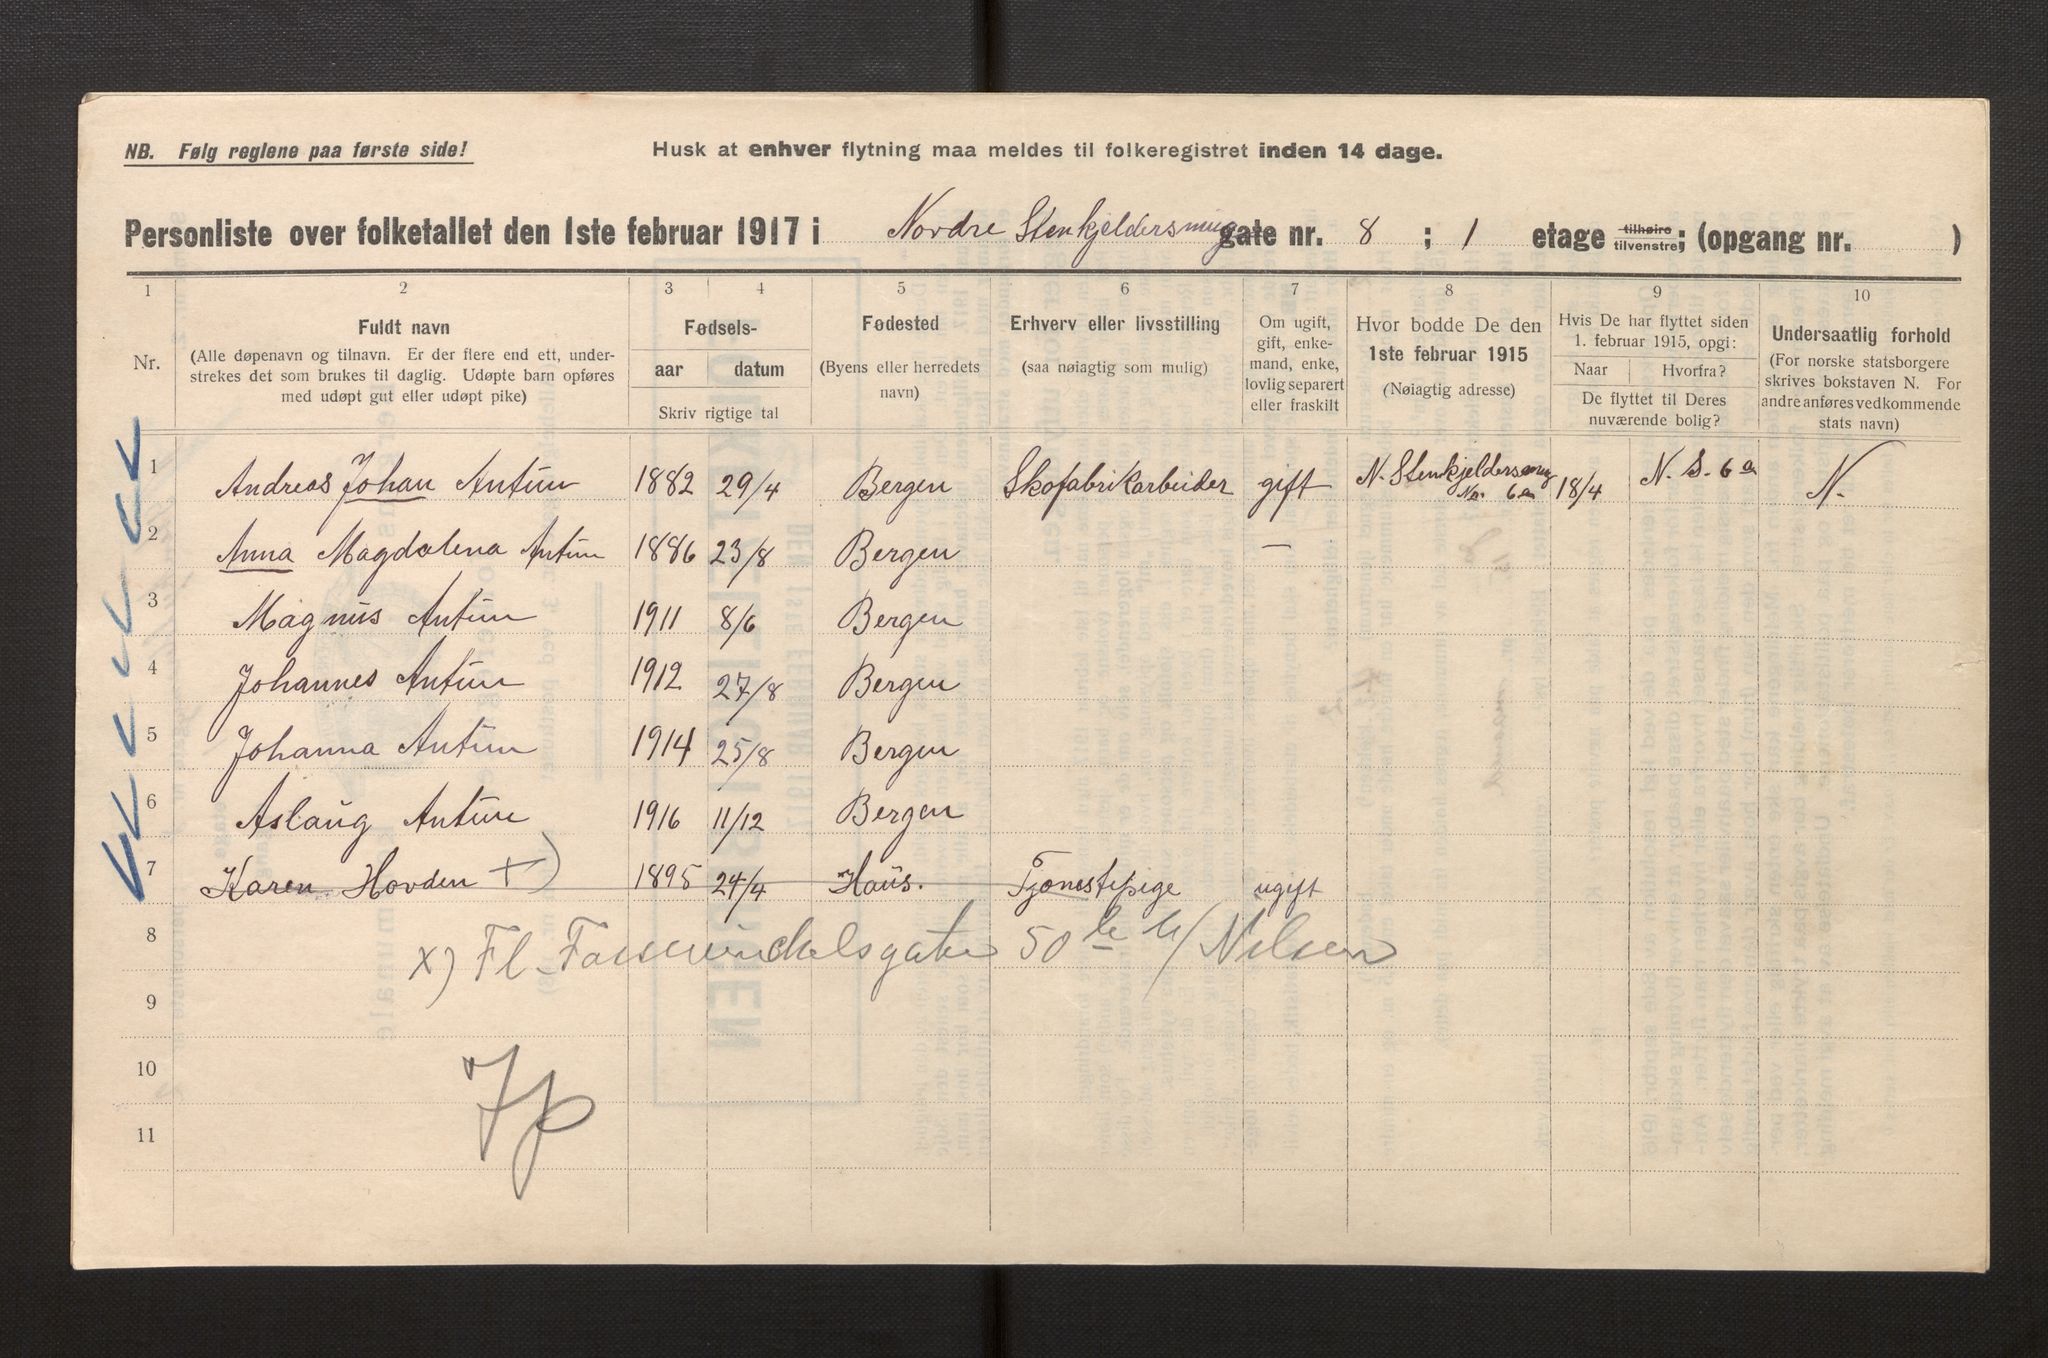 NB. Følg reglene paa første side!
Husk at enhver flytning maa meldes til folkeregistret inden 14 dage.
Personliste over folketallet den 1ste februar 1917 i Nordre Stenkjeldersmug gate nr. 8 ; 1 etage tilhøire tilvenstre; (opgang nr. )
1 2 3 4 5 6 7 8 9 10
Nr.
Fuldt navn
(Alle døpenavn og tilnavn. Er der flere end ett, under-
strekes det som brukes til daglig. Udøpte barn opføres
med udøpt gut eller udøpt pike)
Fødsels-
aar datum
Skriv rigtige tal
Fødested
(Byens eller herredets
navn)
Erhverv eller livsstilling
(saa nøiagtig som mulig)
Om ugift,
gift, enke-
mand, enke,
lovlig separert
eller fraskilt
Hvor bodde De den
1ste februar 1915
(Nøiagtig adresse)
Hvis De har flyttet siden
1. februar 1915, opgi:
Naar Hvorfra?
De flyttet til Deres
nuværende bolig?
Undersaatlig forhold
(For norske statsborgere
skrives bokstaven N. For
andre anføres vedkommende
stats navn)
1 Andreas Johan Antun 1882 29/4 Bergen Skofabrikarbeider gift N. Stenkjeldersmug No. 6a 18/4 N. S. 6a N.
2 Anna Magdalena Antun 1886 23/8 Bergen —
3 Magnus Antun 1911 8/6 Bergen
4 Johannes Antun 1912 27/8 Bergen
5 Johanna Antun 1914 25/8 Bergen
6 Aslaug Antun 1916 11/12 Bergen
7 Karen Hovden +) 1895 24/4 Haus. Tjenestepige ugift
8 x) Fl. Fosswinckelsgaten 50 Nilsen
9
10 7p
11